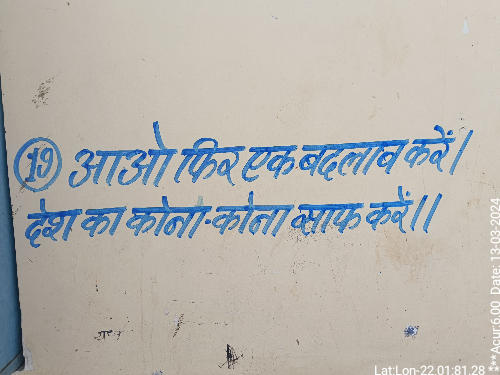 19 आओ फिर एक बदलाव करें।
देश का कोना-कोना साफ करें।।
Lat:Lon-22.01:81.28
***Acur:6.00 Date:13-03-2024